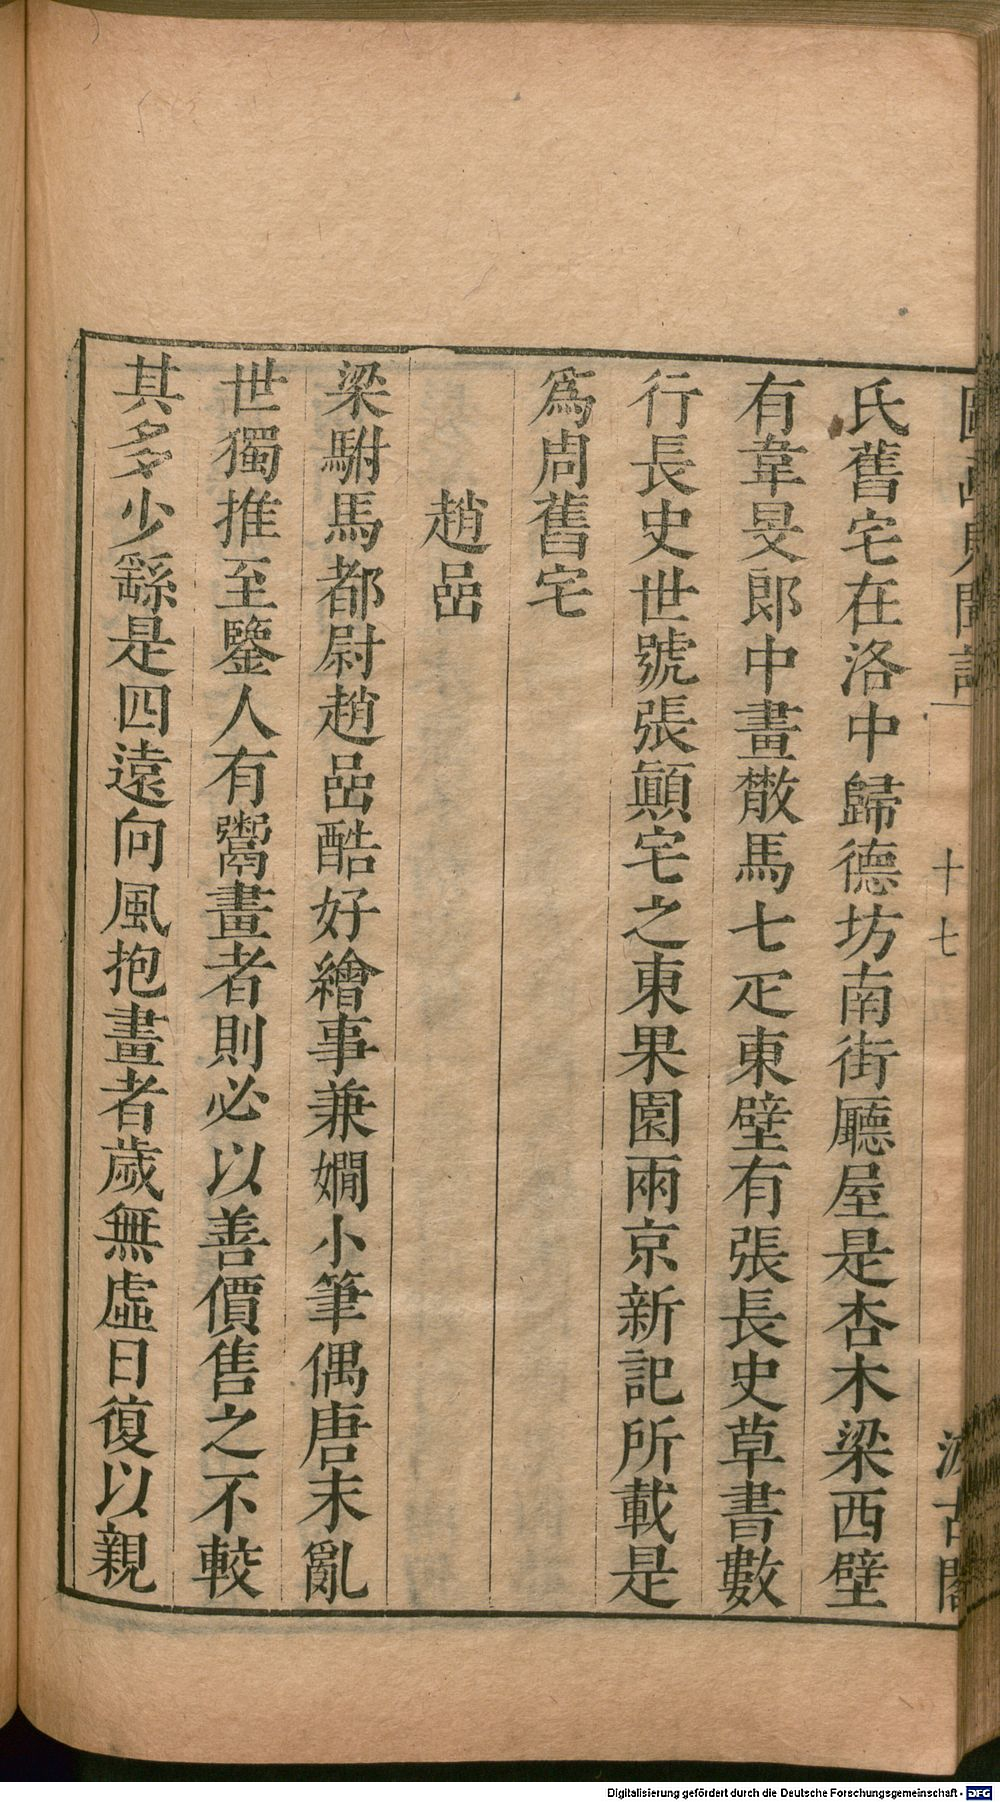 圖畫見聞誌
十七
汲古閣
氏舊宅在洛中歸德坊南街廳屋是杏木梁西壁
有韋旻郎中畫散馬七疋東壁有張長史草書數
行長史世號張顚宅之東果園兩京新記所載是
爲周舊宅
趙嵒
梁駙馬都尉趙嵒酷好繪事兼嫺小筆偶唐末亂
世獨推至鑒人有鬻畫者則必以善價售之不較
其多少繇是四遠向風抱畫者歲無虛日復以親
Digitalisierung gefördert durch die Deutsche Forschungsgemeinschaft - DFG